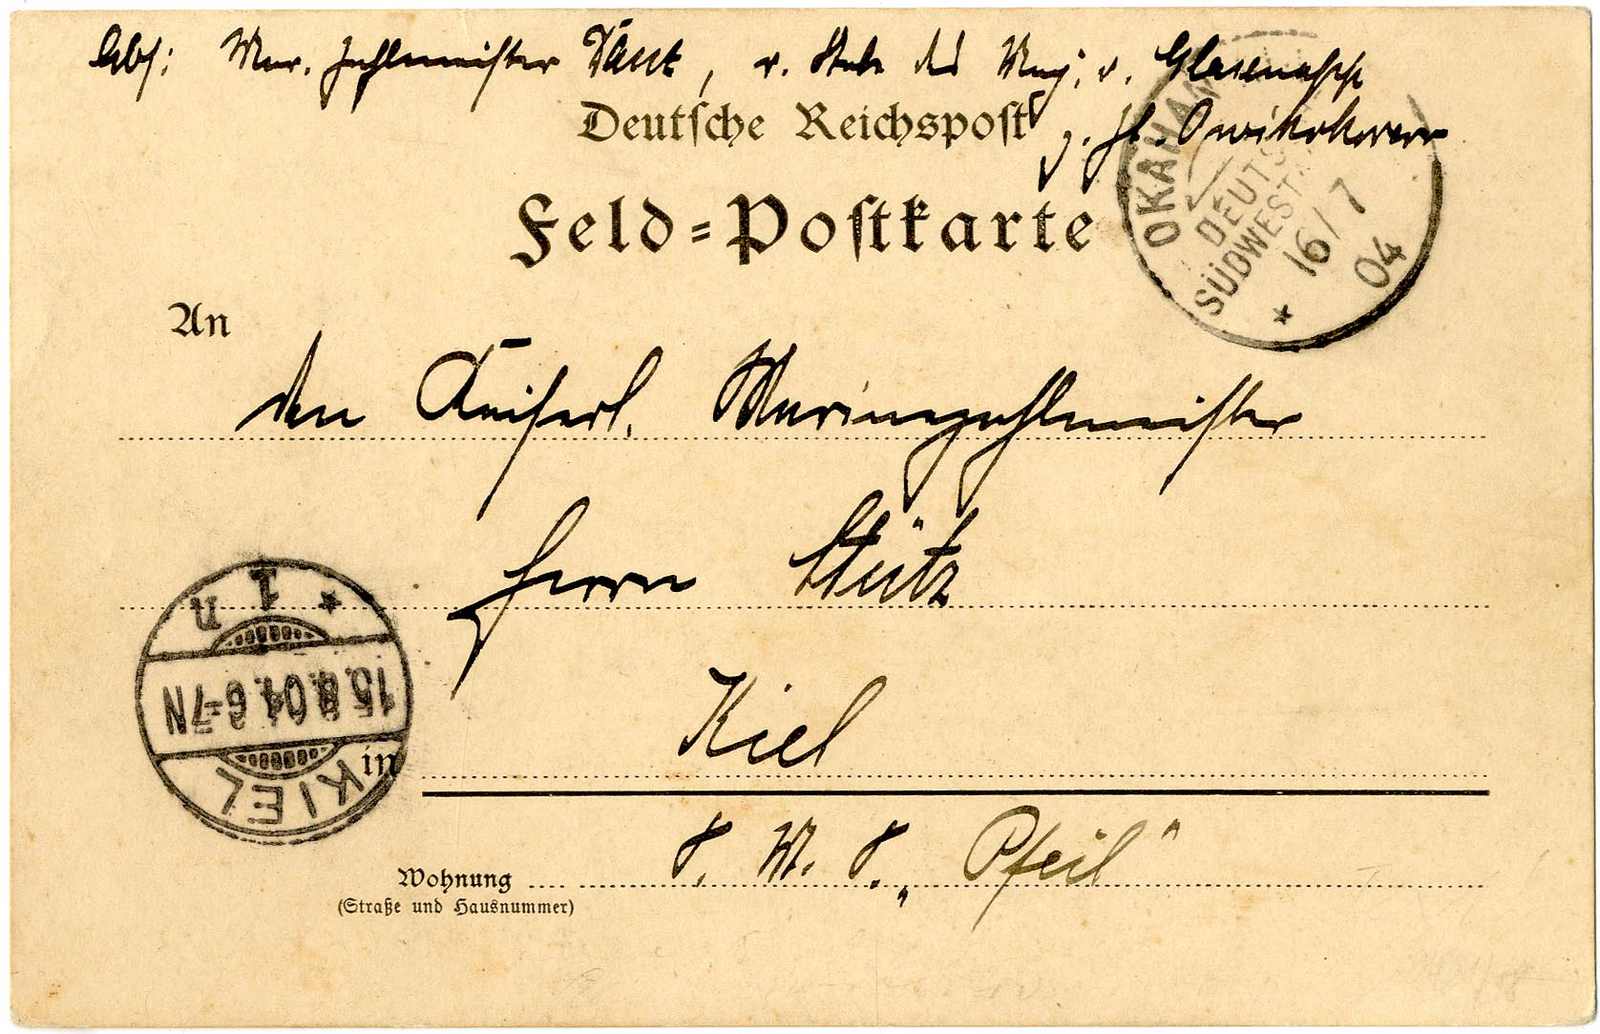 Abs: Mar. Zahlmeister Tänt, v. Stabe des Maj. v. Glasenapp
Deutsche Reichspost
z. Zt. Owikokorero
Feld-Postkarte
OKAHAN
DEUTSCH
SÜDWEST
16/7
04
An
den Kaiserl. Marinezahlmeister
Herrn Stütz
Kiel
in
S. M. S. „Pfeil"
Wohnung
(Straße und Hausnummer)
KIEL
15.8.04. 6-7N
* 1 n